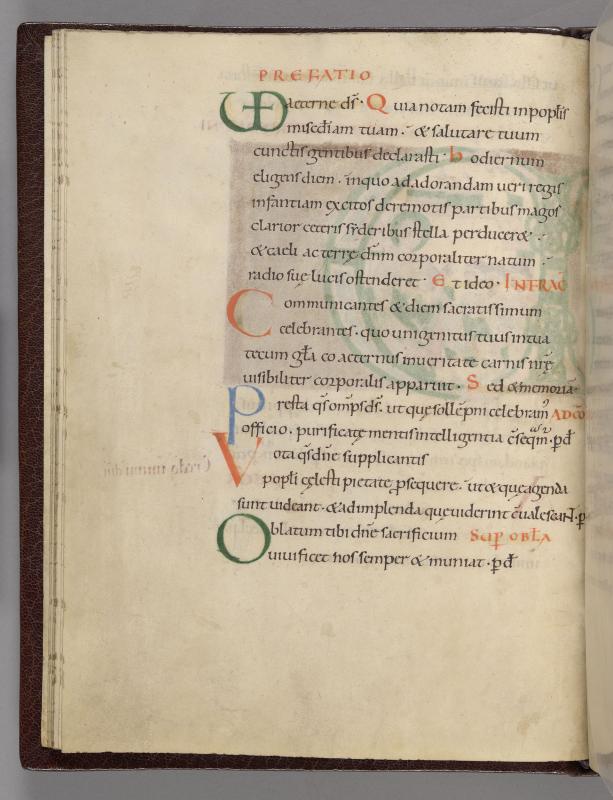 PREFATIO
VD aeterne ds̄. Quia notam fecisti in poplis
misc̄diam tuam. & salutare tuum
cunctis gentibus declarasti. hodiernum
eligens diem. in quo ad adorandam ueri regis
infantiam excitos de remotis partibus magos
clarior ceteris syderibus stella perducer&.
& caeli ac terrę dn̄m corporaliter natum.
radio suę lucis ostenderet. Et ideo. INFRAC̄
Communicantes & diem sacratissimum
celebrantes. quo unigenitus tuus in tua
tecum gl̄a coaeternus in ueritate carnis nr̄ę
uisibiliter corporalis apparuit. Sed & memoria.
Presta qs̄ om̄ps ds̄. ut quę sollēpni celebram᾽ AD CŌ
officio. purificatę mentis intelligentia c̄seqm̄. p̲ d̄
Vota qs̄ dn̄e supplicantis
popli cęlesti pietate p̲sequere. ut & quę agenda
sunt uideant. & ad implenda quę uiderint c̄ualescant. p̲
Oblatum tibi dn̄e sacrificium SUP̲ OBLA
uiuificet nos semper & muniat. p̲ d̄